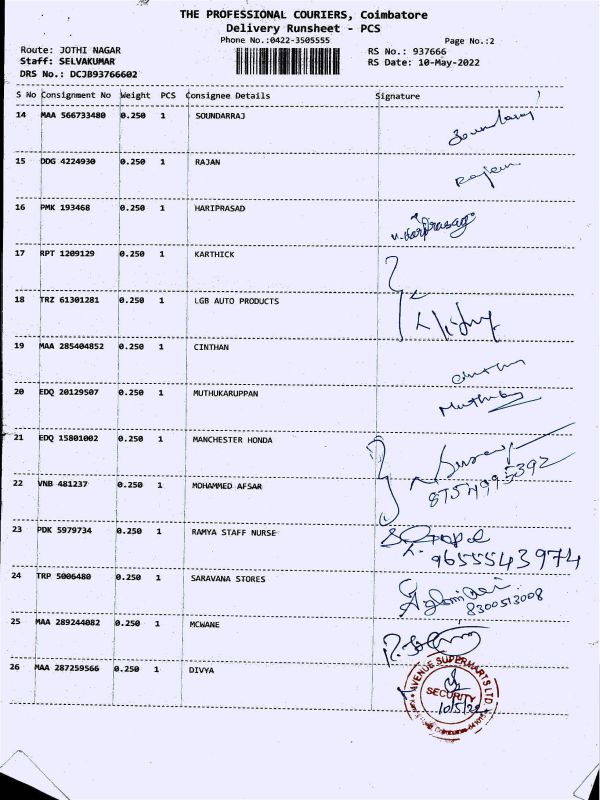 THE PROFESSIONAL COURIERS, Coimbatore
Delivery Runsheet - PCS
Phone No.:0422-3505555
Page No.:2
Route: JOTHI NAGAR
RS No.: 937666
Staff: SELVAKUMAR
RS Date: 10-May-2022
DRS No.: DCJB93766602
S No Consignment No Weight PCS Consignee Details Signature
14 MAA 566733480 0.250 1 SOUNDARRAJ Soundarraj
15 DDG 4224930 0.250 1 RAJAN Rajan
16 PMK 193468 0.250 1 HARIPRASAD Hariprasad
17 RPT 1209129 0.250 1 KARTHICK
18 TRZ 61301281 0.250 1 LGB AUTO PRODUCTS
19 MAA 285404852 0.250 1 CINTHAN
20 EDQ 20129507 0.250 1 MUTHUKARUPPAN
21 EDQ 15801002 0.250 1 MANCHESTER HONDA
22 VNB 481237 0.250 1 MOHAMMED AFSAR 8754995392
23 PDK 5979734 0.250 1 RAMYA STAFF NURSE
9655543974
24 TRP 5006480 0.250 1 SARAVANA STORES
8300513008
25 MAA 289244082 0.250 1 MCWANE
26 MAA 287259566 0.250 1 DIVYA
AVENUE SUPERMARTS LTD.
SECURITY
10/5/22